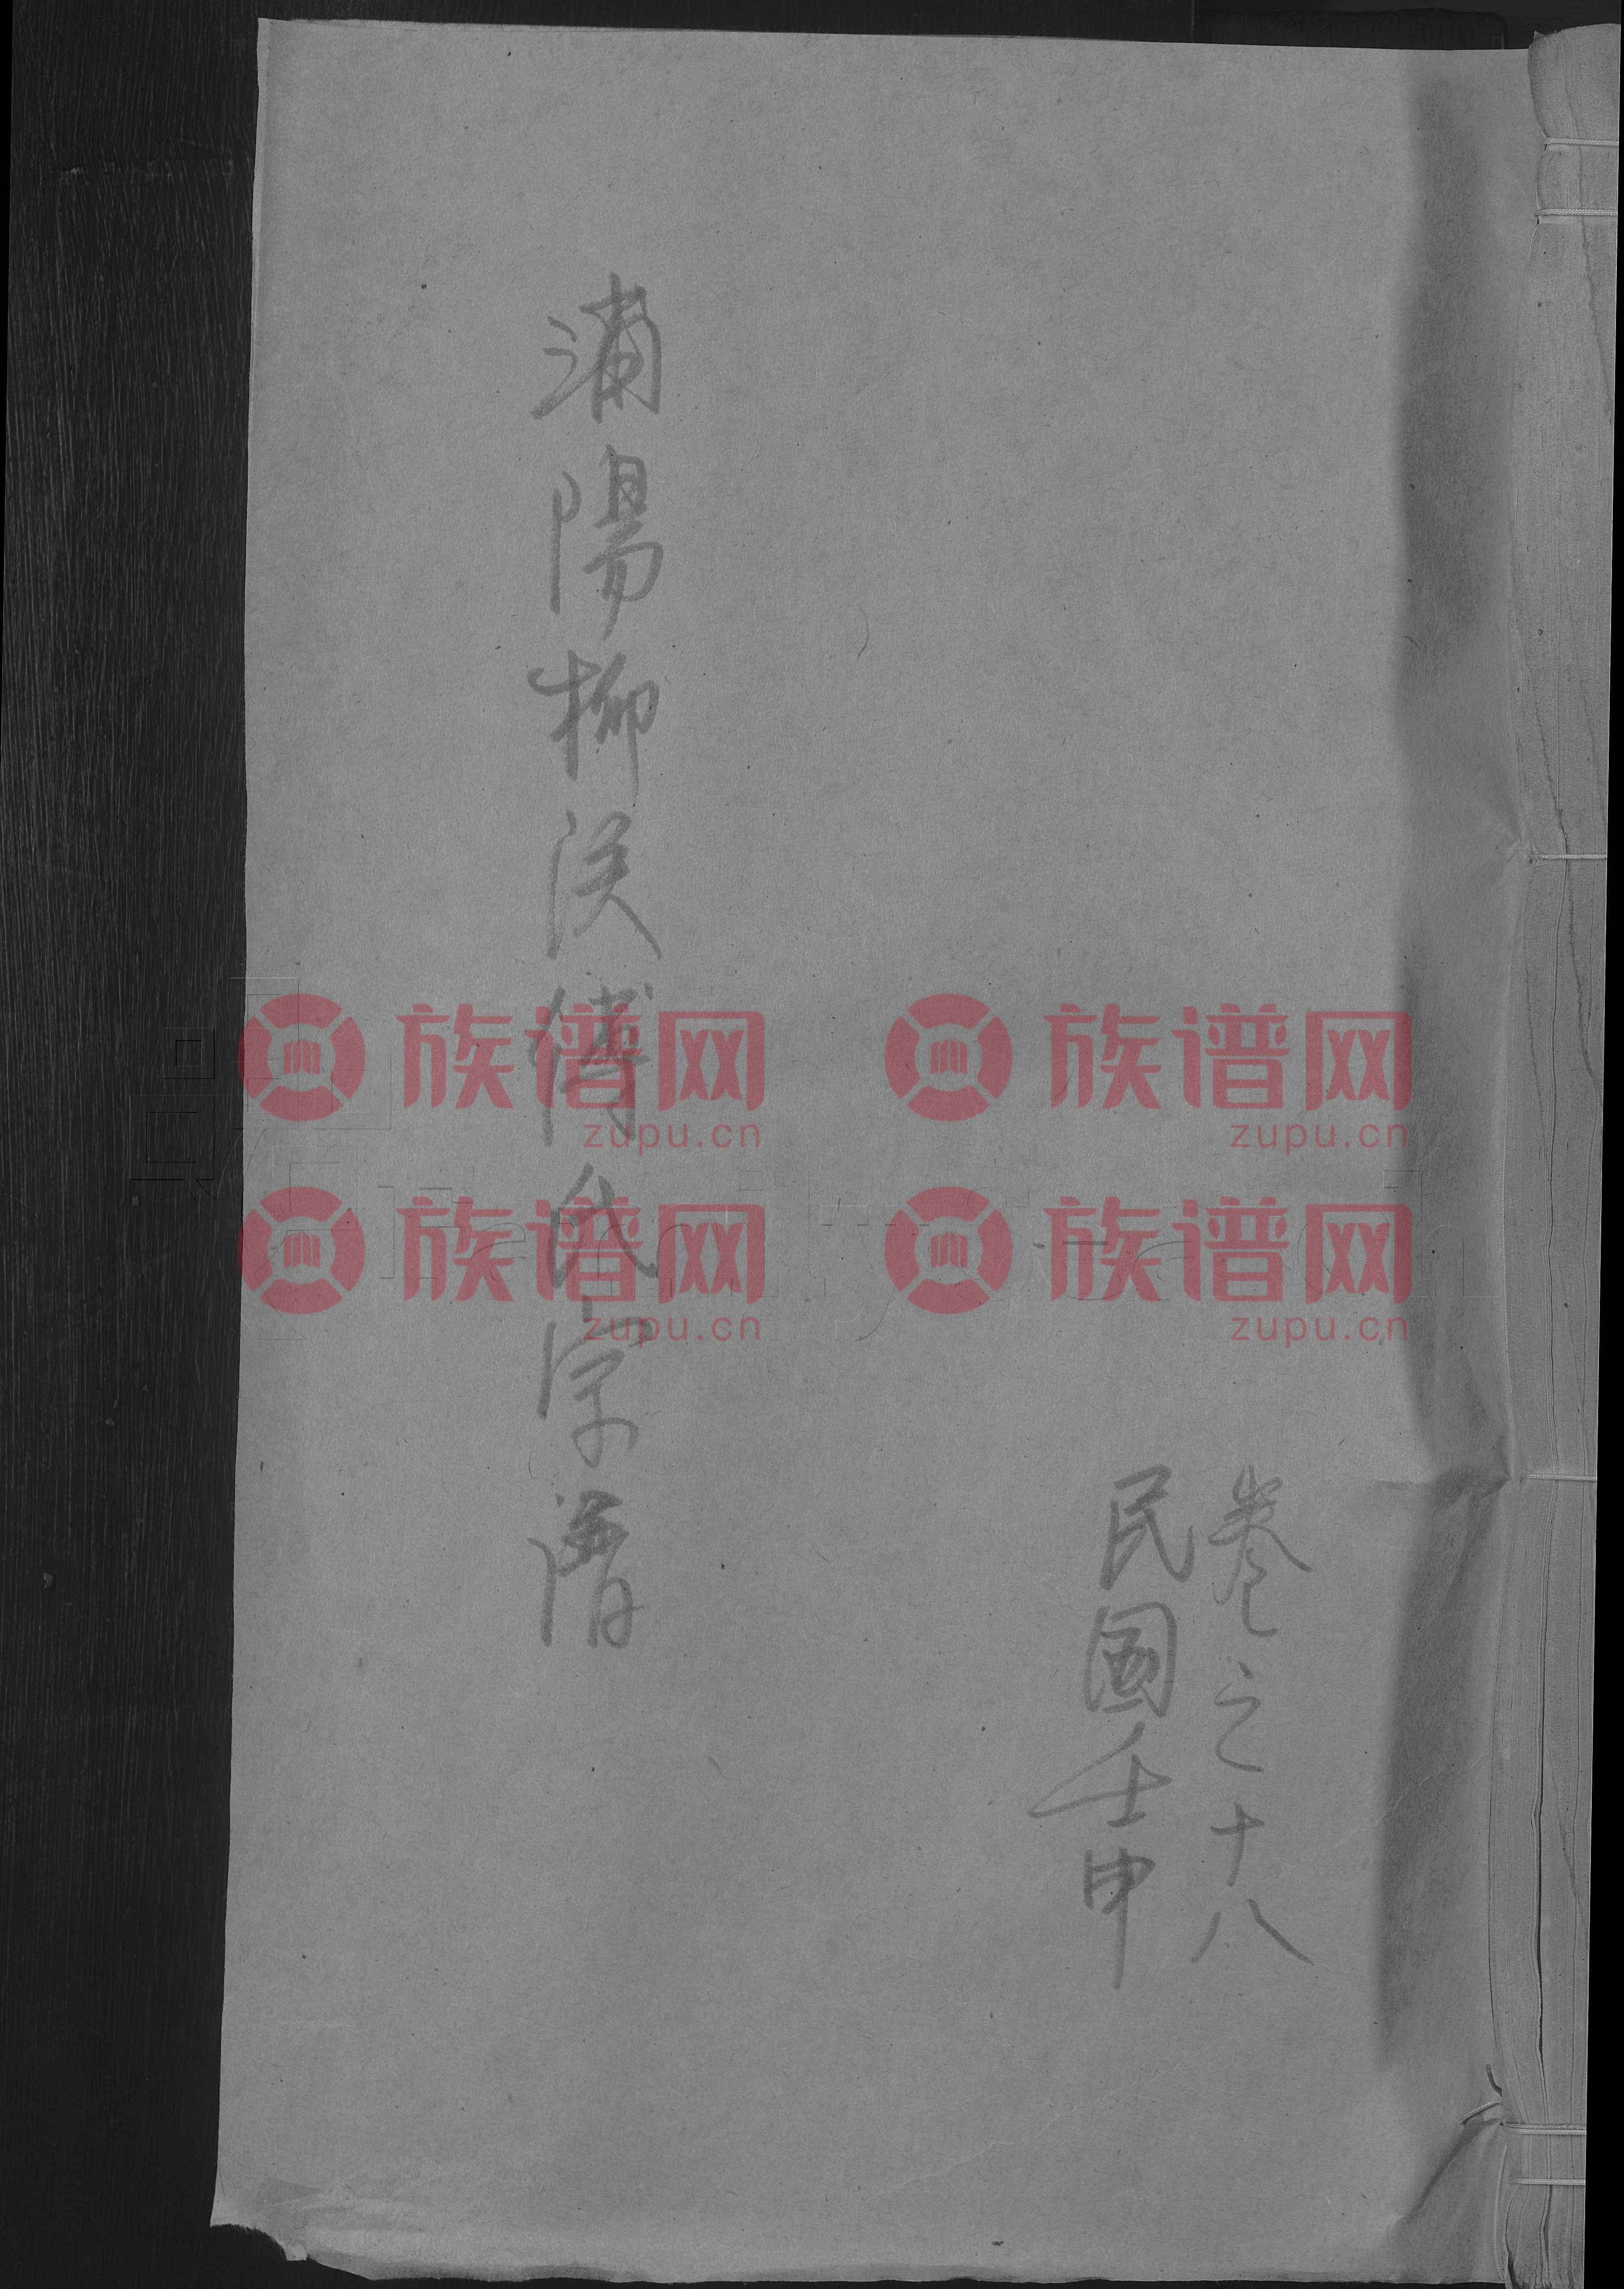 卷之十八
民國壬申
浦陽柳溪傅氏宗譜
族谱网
zupu.cn
族谱网
zupu.cn
族谱网
zupu.cn
族谱网
zupu.cn